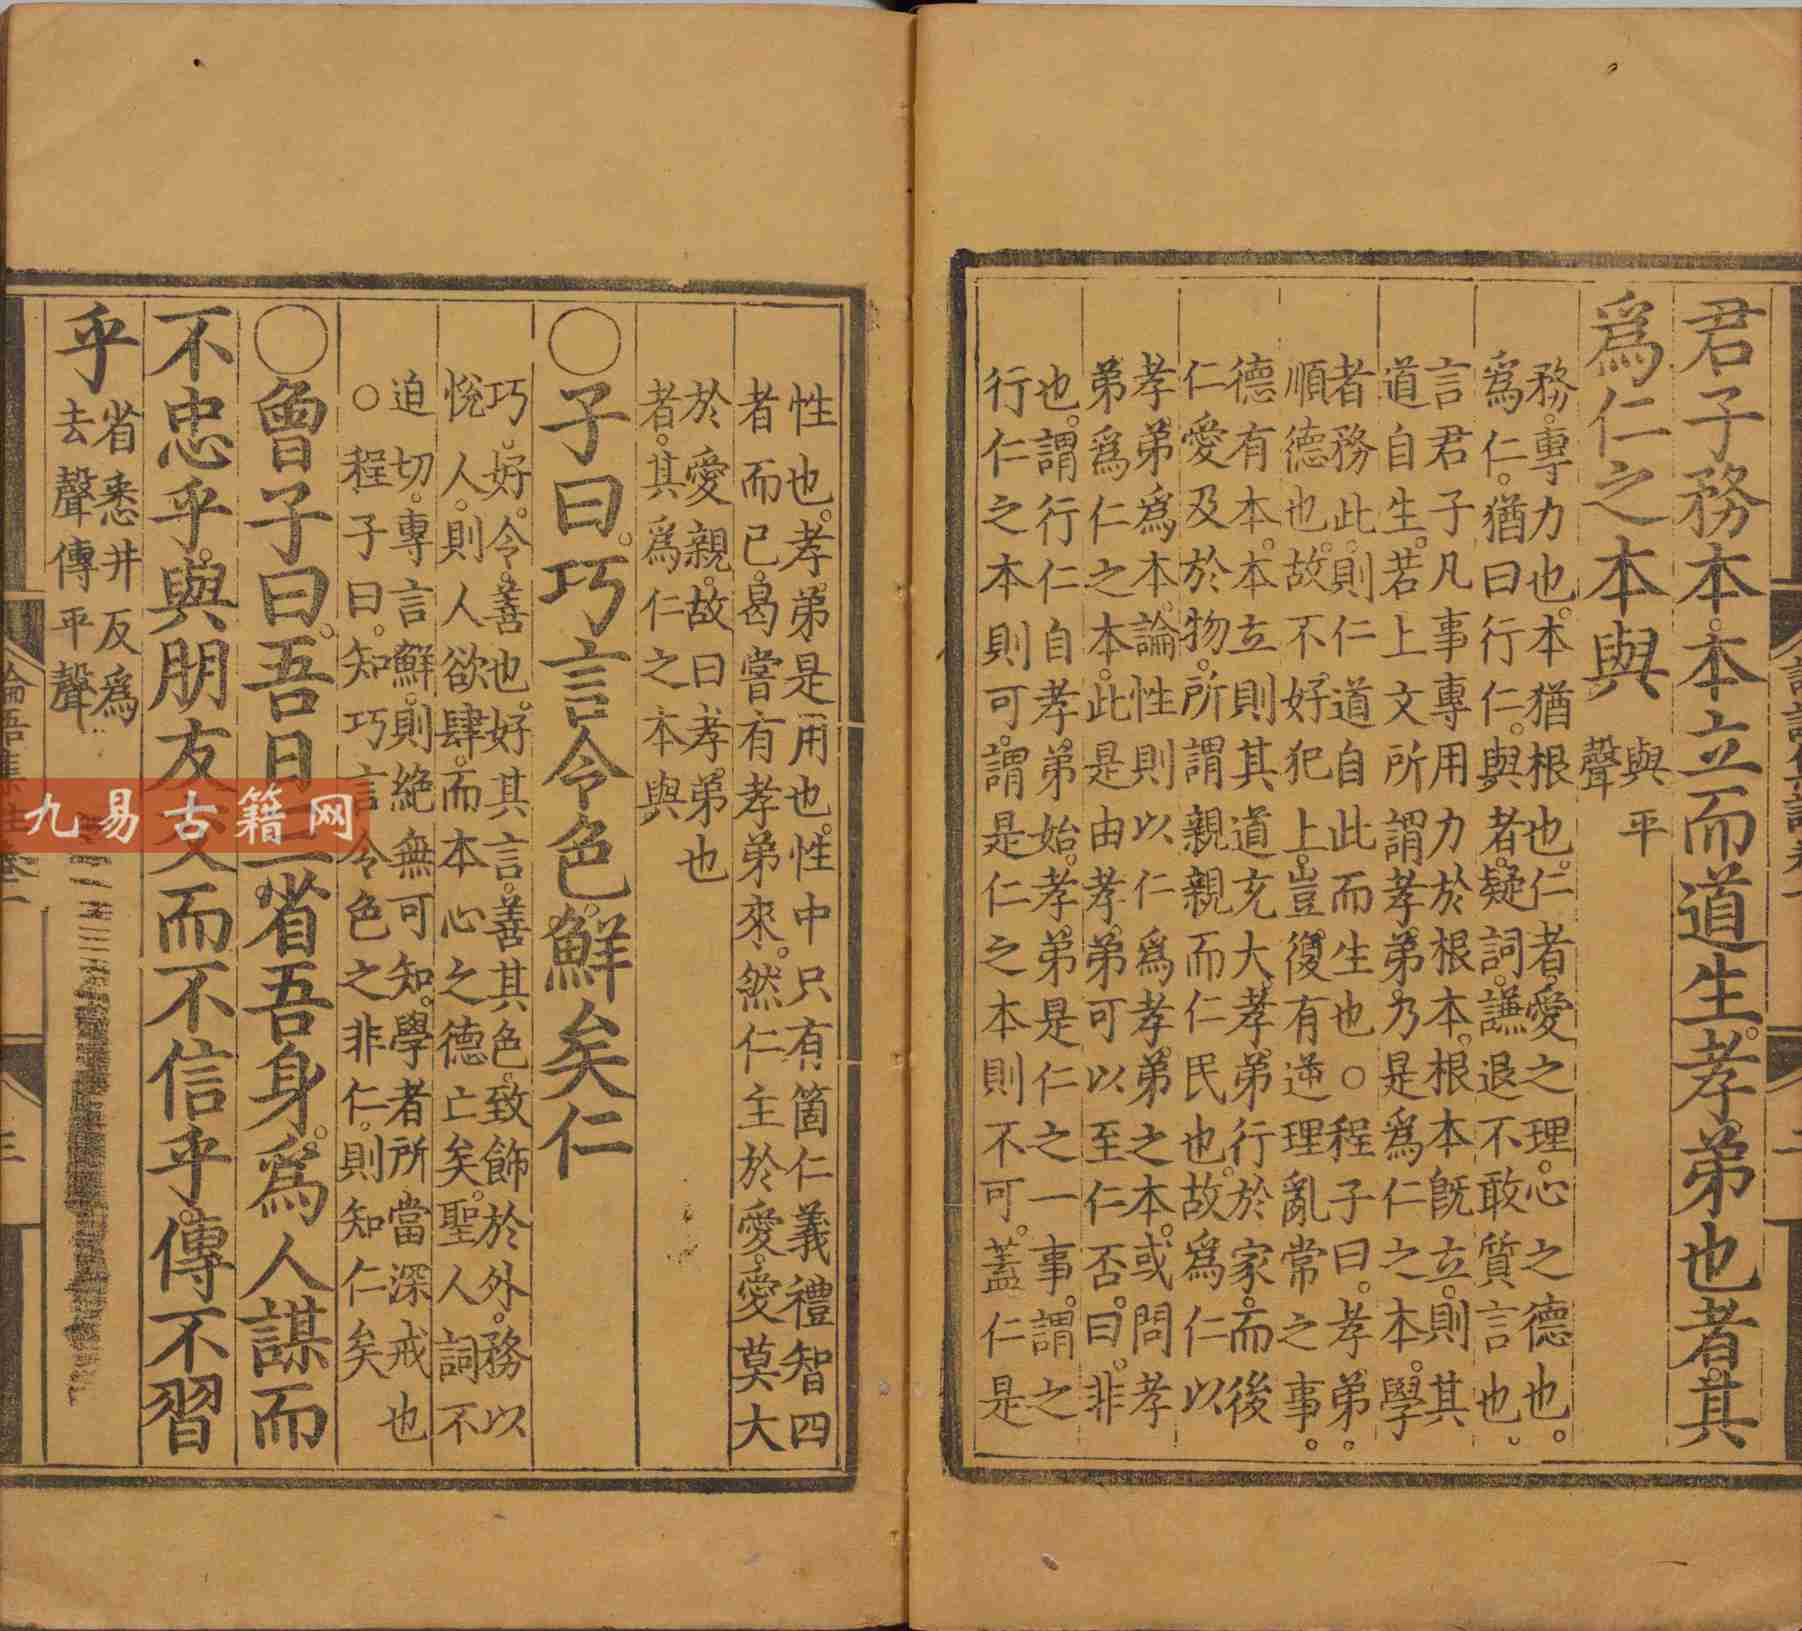 君子務本本立而道生孝弟也者其
爲仁之本與
與平
聲
務專力也本猶根也仁者愛之理心之德也
爲仁猶曰行仁與者疑詞謙退不敢質言也
言君子凡事專用力於根本根本旣立則其
道自生若上文所謂孝弟乃是爲仁之本學
者務此則仁道自此而生也○程子曰孝弟
順德也故不好犯上豈復有逆理亂常之事
德有本本立則其道充大孝弟行於家而後
仁愛及於物所謂親親而仁民也故爲仁以
孝弟爲本論性則以仁爲孝弟之本或問孝
弟爲仁之本此是由孝弟可以至仁否曰非
也謂行仁自孝弟始孝弟是仁之一事謂之
行仁之本則可謂是仁之本則不可蓋仁是
性也孝弟是用也性中只有箇仁義禮智四
者而已曷嘗有孝弟來然仁主於愛愛莫大
於愛親故曰孝弟也
者其爲仁之本與
○子曰巧言令色鮮矣仁
巧好令善也好其言善其色致飾於外務以
悅人則人欲肆而本心之德亡矣聖人詞不
迫切專言鮮則絶無可知學者所當深戒也
○程子曰知巧言令色之非仁則知仁矣
○曾子曰吾日三省吾身爲人謀而
不忠乎與朋友交而不信乎傳不習
乎
省悉井反爲
去聲傳平聲
三
九易古籍网